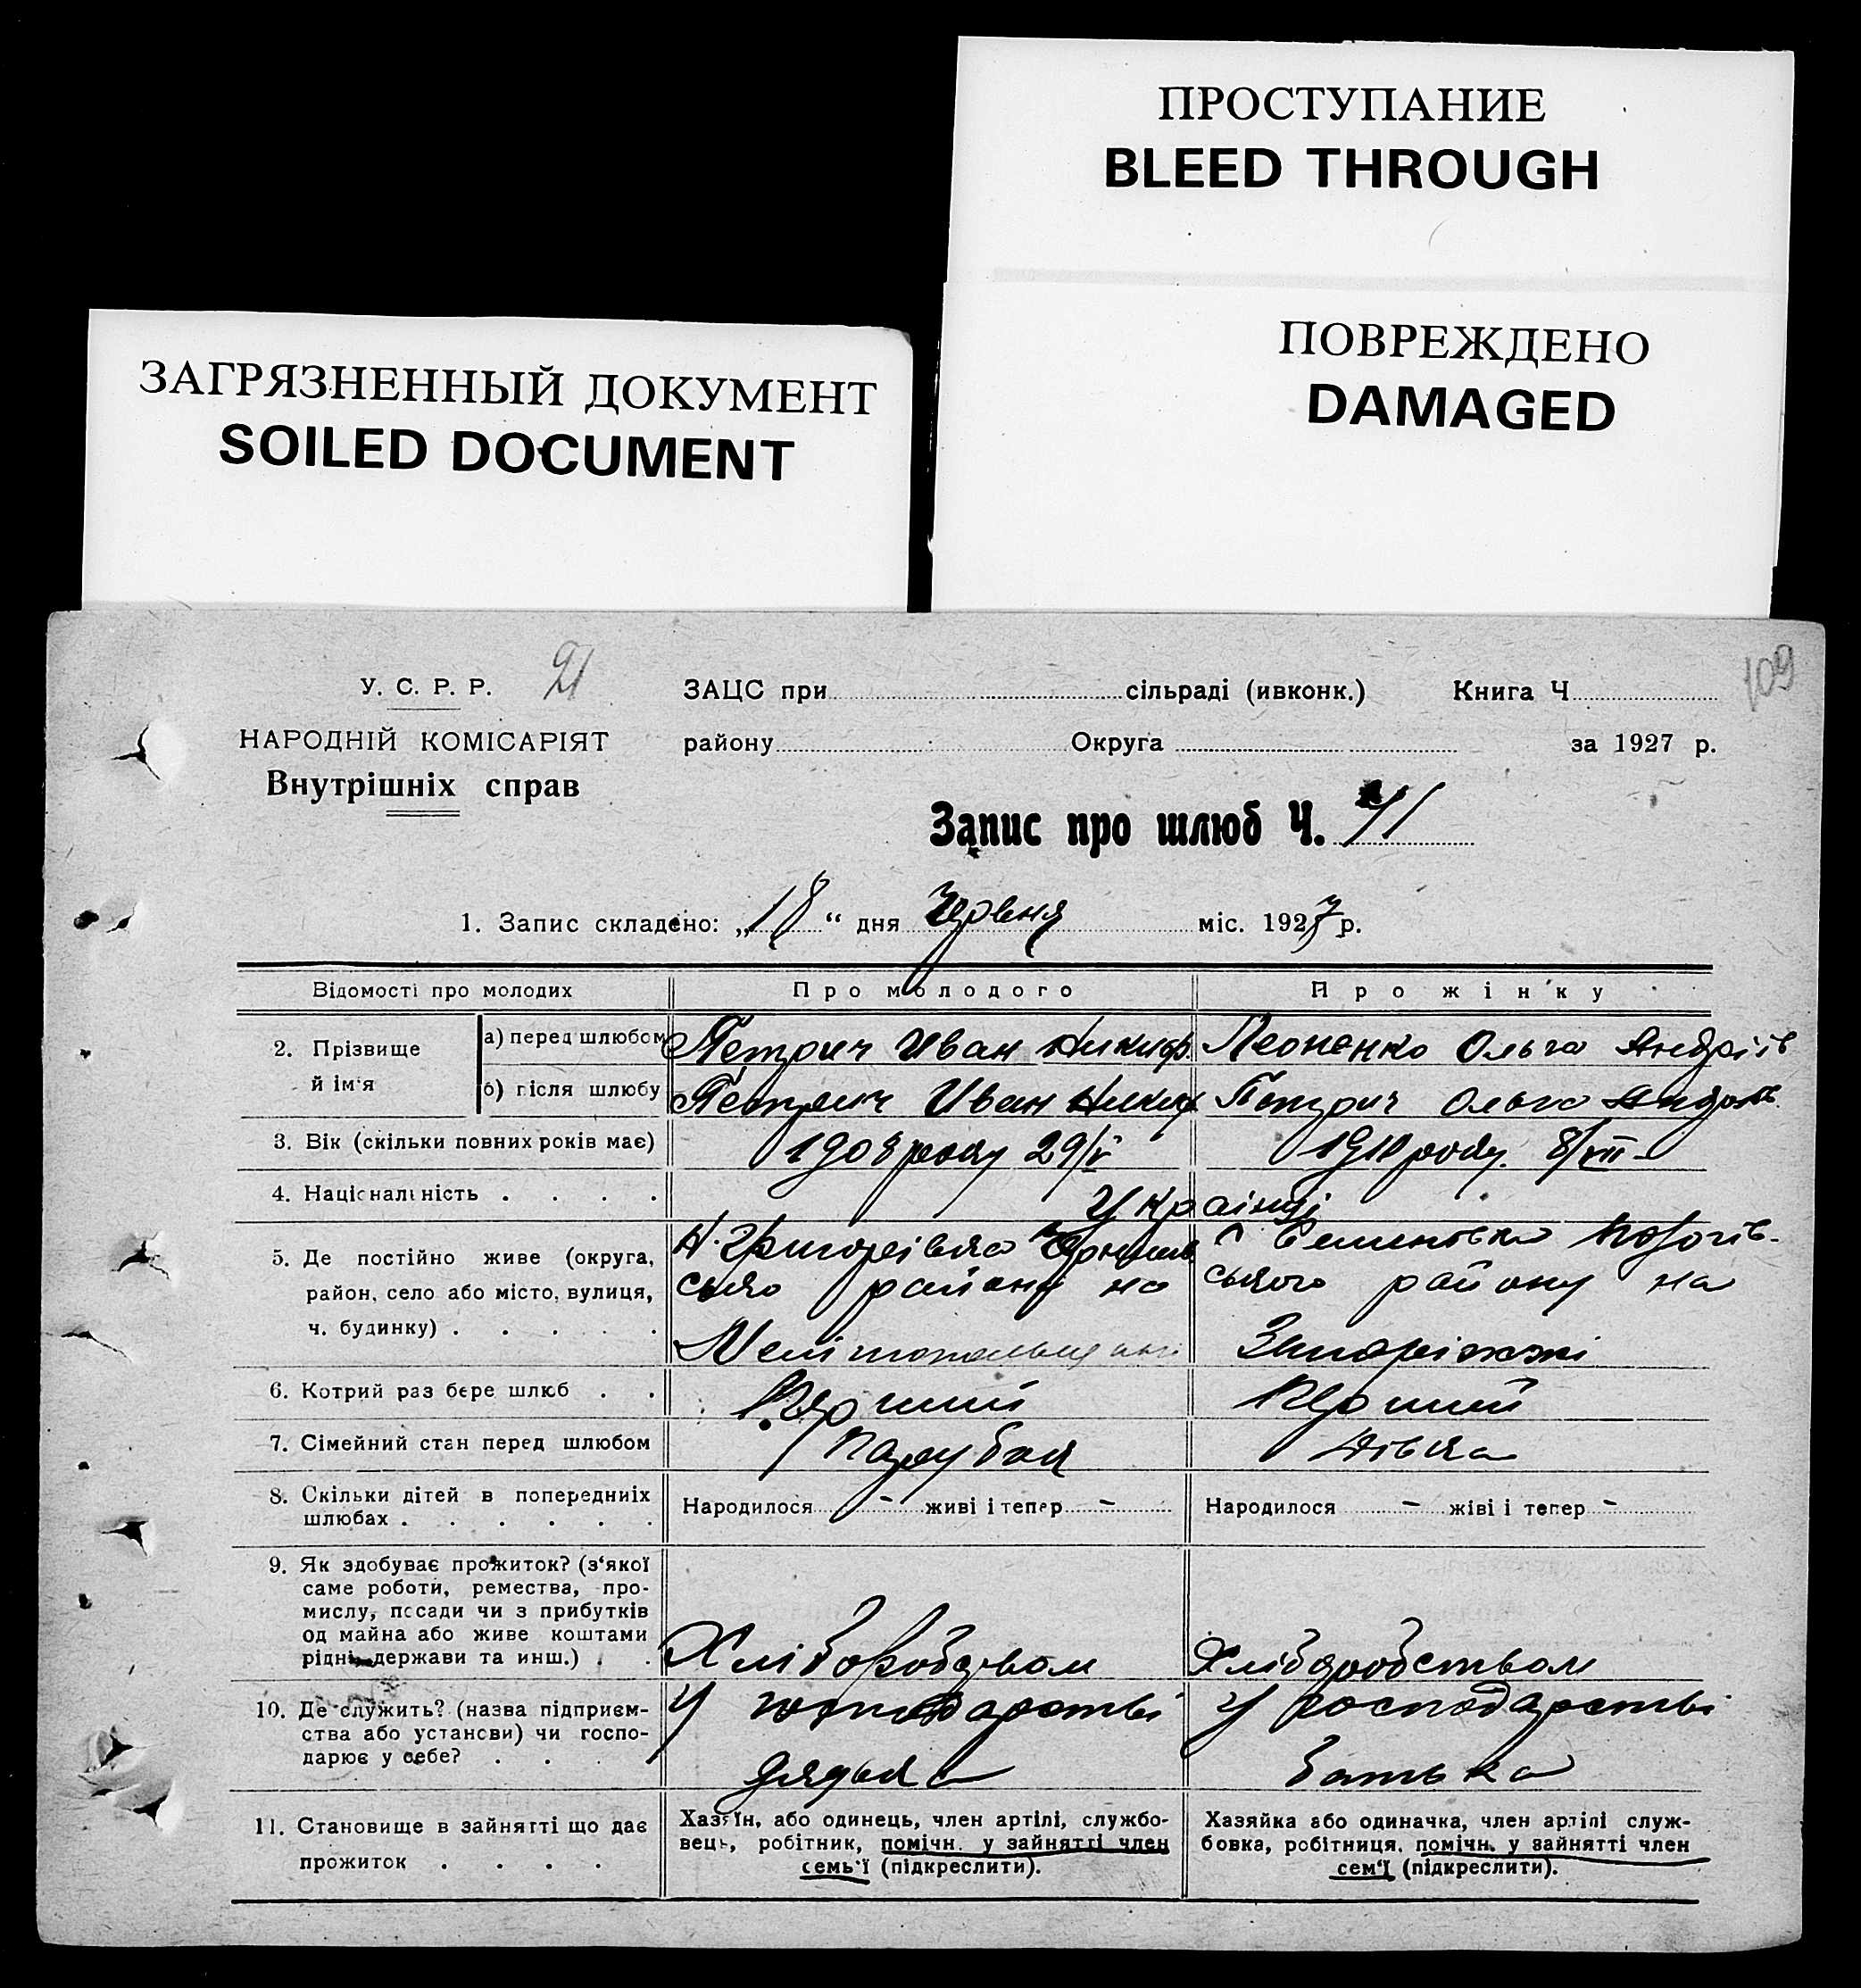 ПРОСТУПАНИЕ
BLEED THROUGH
ПОВРЕЖДЕНО
DAMAGED
ЗАГРЯЗНЕННЫЙ ДОКУМЕНТ
SOILED DOCUMENT
У. С. Р. Р. 21 ЗАЦС при сільраді (ивконк.) Книга Ч 109
НАРОДНІЙ КОМІСАРІЯТ району Округа за 1927 р.
Внутрішніх справ
Запис про шлюб Ч. 41
1. Запис складено: „18“ дня Червня міс. 1927 р.
Відомості про молодих Про молодого Про жінку
2. Прізвище й ім'я а) перед шлюбом Петрич Иван Никиф. Леоненко Ольга Андріїв
б) після шлюбу Петрич Иван Никиф Петрич Ольга
3. Вік (скільки повних років має) 1908 року 29/V 1910 року 8/VII
4. Національність . . . . Українці
5. Де постійно живе (округа, Н. Григорівка с Семенівка
район, село або місто, вулиця, ського району на ського району на
ч. будинку) . . . . . Запоріжжі
6. Котрий раз бере шлюб . . Перший Перший
7. Сімейний стан перед шлюбом Парубок Дівка
8. Скільки дітей в попередниіх Народилося - живі і тепер - Народилося - жіві і тепер -
шлюбах . . . . . .
9. Як здобуває прожиток? (з'якої
саме роботи, ремества, про-
мислу, посади чи з прибутків
од майна або живе коштами
рідні, держави та инш.) . . Хліборобством Хліборобством
10. Де служить? (назва підприєм- У господарстві У господарстві
ства або устансви) чи госпо-
дарює у себе? . . . дядька батька
11. Становище в зайнятті що дає Хазяїн, або одинець, член артілі, службо- Хазяйка або одиначка, член артілі служ-
прожиток . . . . вець, робітник, помічн. у зайнятті член бовка, робітниця, помічн. у зайнятті член
семь'ї (підкреслити). сем'ї (підкреслити).